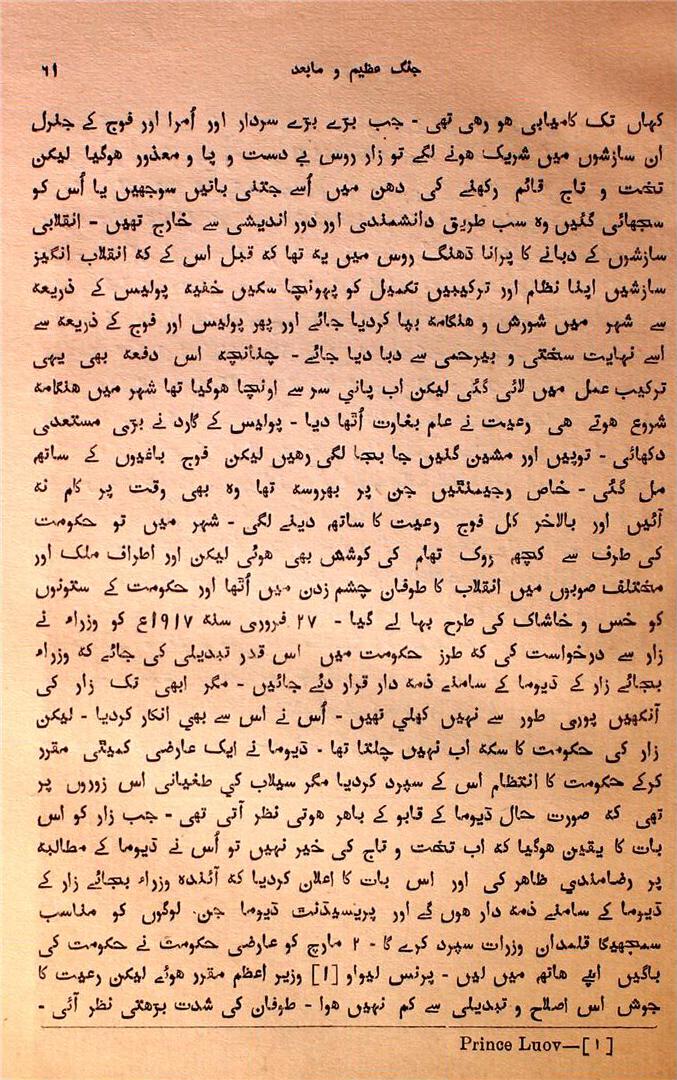 جنگ عظیم و مابعد
۶۱
کہاں تک کامیابی ہو رہی تھی - جب بڑے بڑے سردار اور اُمرا اور فوج کے جنرل
ان سازشوں میں شریک ہونے لگے تو زار روس بے دست و پا و معذور ہوگیا لیکن
تخت و تاج قائم رکھنے کی دھن میں اُسے جتنی باتیں سوجھیں یا اُس کو
سجھائی گئیں وہ سب طریق دانشمندی اور دور اندیشی سے خارج تھیں - انقلابی
سازشوں کے دبانے کا پرانا ڈھنگ روس میں یہ تھا کہ قبل اس کے کہ انقلاب انگیز
سازشیں اپنا نظام اور ترکیبیں تکمیل کو پہونچا سکیں خفیہ پولیس کے ذریعہ
سے شہر میں شورش و ہنگامہ بپا کردیا جائے اور پھر پولیس اور فوج کے ذریعہ سے
اسے نہایت سختی و بیرحمی سے دبا دیا جائے - چنانچہ اس دفعہ بھی یہی
ترکیب عمل میں لائی گئی لیکن اب پانی سر سے اونچا ہوگیا تھا شہر میں ہنگامہ
شروع ہوتے ہی رعیت نے عام بغاوت اُٹھا دیا - پولیس کے گارد نے بڑی مستعدی
دکھائی - توپیں اور مشین گنیں جا بجا لگی رہیں لیکن فوج باغیوں کے ساتھ
مل گئی - خاص رجیمنٹیں جن پر بھروسہ تھا وہ بھی وقت پر کام نہ
آئیں اور بالآخر کل فوج رعیت کا ساتھ دینے لگی - شہر میں تو حکومت
کی طرف سے کچھ روک تھام کی کوشش بھی ہوئی لیکن اور اطراف ملک اور
مختلف صوبوں میں انقلاب کا طوفان چشم زدن میں اُٹھا اور حکومت کے ستونوں
کو خس و خاشاک کی طرح بہا لے گیا - ۲۷ فروری سنہ ۱۹۱۷ع کو وزراء نے
زار سے درخواست کی کہ طرز حکومت میں اس قدر تبدیلی کی جائے کہ وزراء
بجائے زار کے ڈیوما کے سامنے ذمہ دار قرار دئے جائیں - مگر ابھی تک زار کی
آنکھیں پوری طور سے نہیں کھلی تھیں - اُس نے اس سے بھی انکار کردیا - لیکن
زار کی حکومت کا سکہ اب نہیں چلتا تھا - ڈیوما نے ایک عارضی کمیٹی مقرر
کرکے حکومت کا انتظام اس کے سپرد کردیا مگر سیلاب کی طغیانی اس زوروں پر
تھی کہ صورت حال ڈیوما کے قابو کے باہر ہوتی نظر آتی تھی - جب زار کو اس
بات کا یقین ہوگیا کہ اب تخت و تاج کی خیر نہیں تو اُس نے ڈیوما کے مطالبہ
پر رضامندی ظاہر کی اور اس بات کا اعلان کردیا کہ آئندہ وزراء بجائے زار کے
ڈیوما کے سامنے ذمہ دار ہوں گے اور پریسیڈنٹ ڈیوما جن لوگوں کو مناسب
سمجھیگا قلمدان وزرات سپرد کرے گا - ۲ مارچ کو عارضی حکومت نے حکومت کی
باگیں اپنے ہاتھ میں لیں - پرنس لیواو [۱] وزیر اعظم مقرر ہوئے لیکن رعیت کا
جوش اس اصلاح و تبدیلی سے کم نہیں ہوا - طوفان کی شدت بڑھتی نظر آئی -
Prince Luov—[۱]